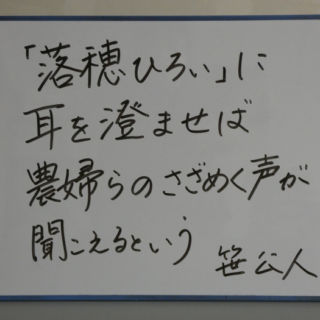 「落穂ひろい」に
耳を澄ませば
農婦らのさざめく声が
聞こえるという 笹公人